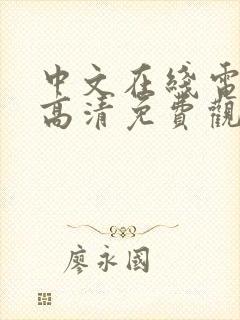 中文在綫電
高清免費觀
廖永國